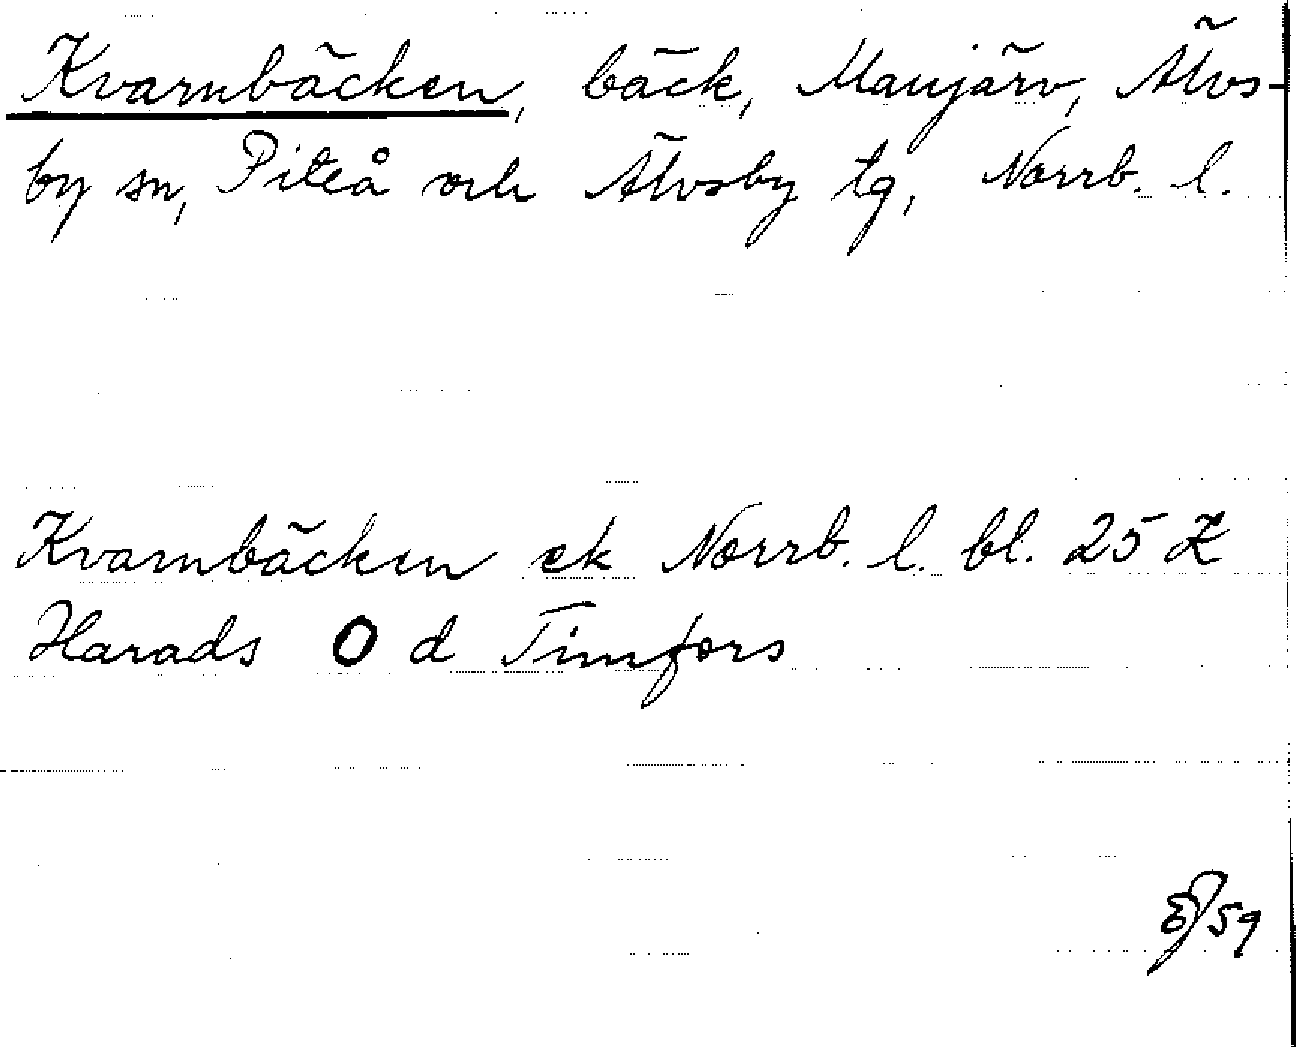 Kvarnbäcken, bäck, Manjärv, Älvs-
by sn, Piteå och Älvsby tg, Norrb. l.
Kvarnbäcken ek Norrb. l. bl. 25 K
Harads O d Timfors
59